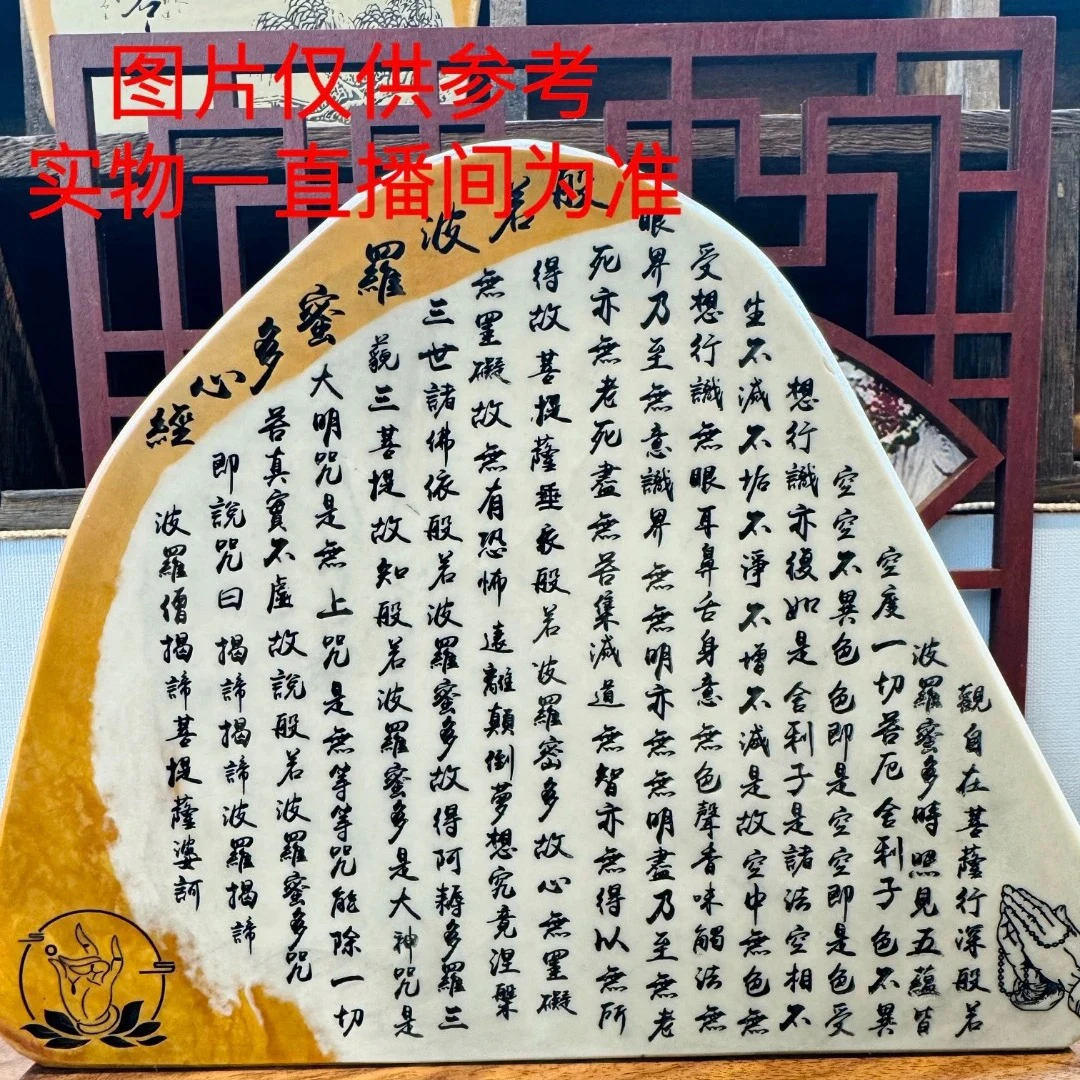 图片仅供参考
实物一直播间为准
般若波羅蜜多心經
觀自在菩薩行深般若
波羅蜜多時照見五蘊皆
空度一切苦厄舍利子色不異
空空不異色色即是空空即是色受
想行識亦復如是舍利子是諸法空相不
生不減不垢不淨不增不減是故空中無色無
受想行識無眼耳鼻舌身意無色聲香味觸法無
眼界乃至無意識界無無明亦無無明盡乃至無老
死亦無老死盡無苦集減道無智亦無得以無所
得故菩提薩埵依般若波羅密多故心無罣礙
無罣礙故無有恐怖遠離顛倒夢想究竟涅槃
三世諸佛依般若波羅蜜多故得阿耨多羅三
藐三菩提故知般若波羅蜜多是大神咒是
大明咒是無上咒是無等等咒能除一切
苦真實不虛故說般若波羅蜜多咒
即說咒曰揭諦揭諦波羅揭諦
波羅僧揭諦菩提薩婆訶